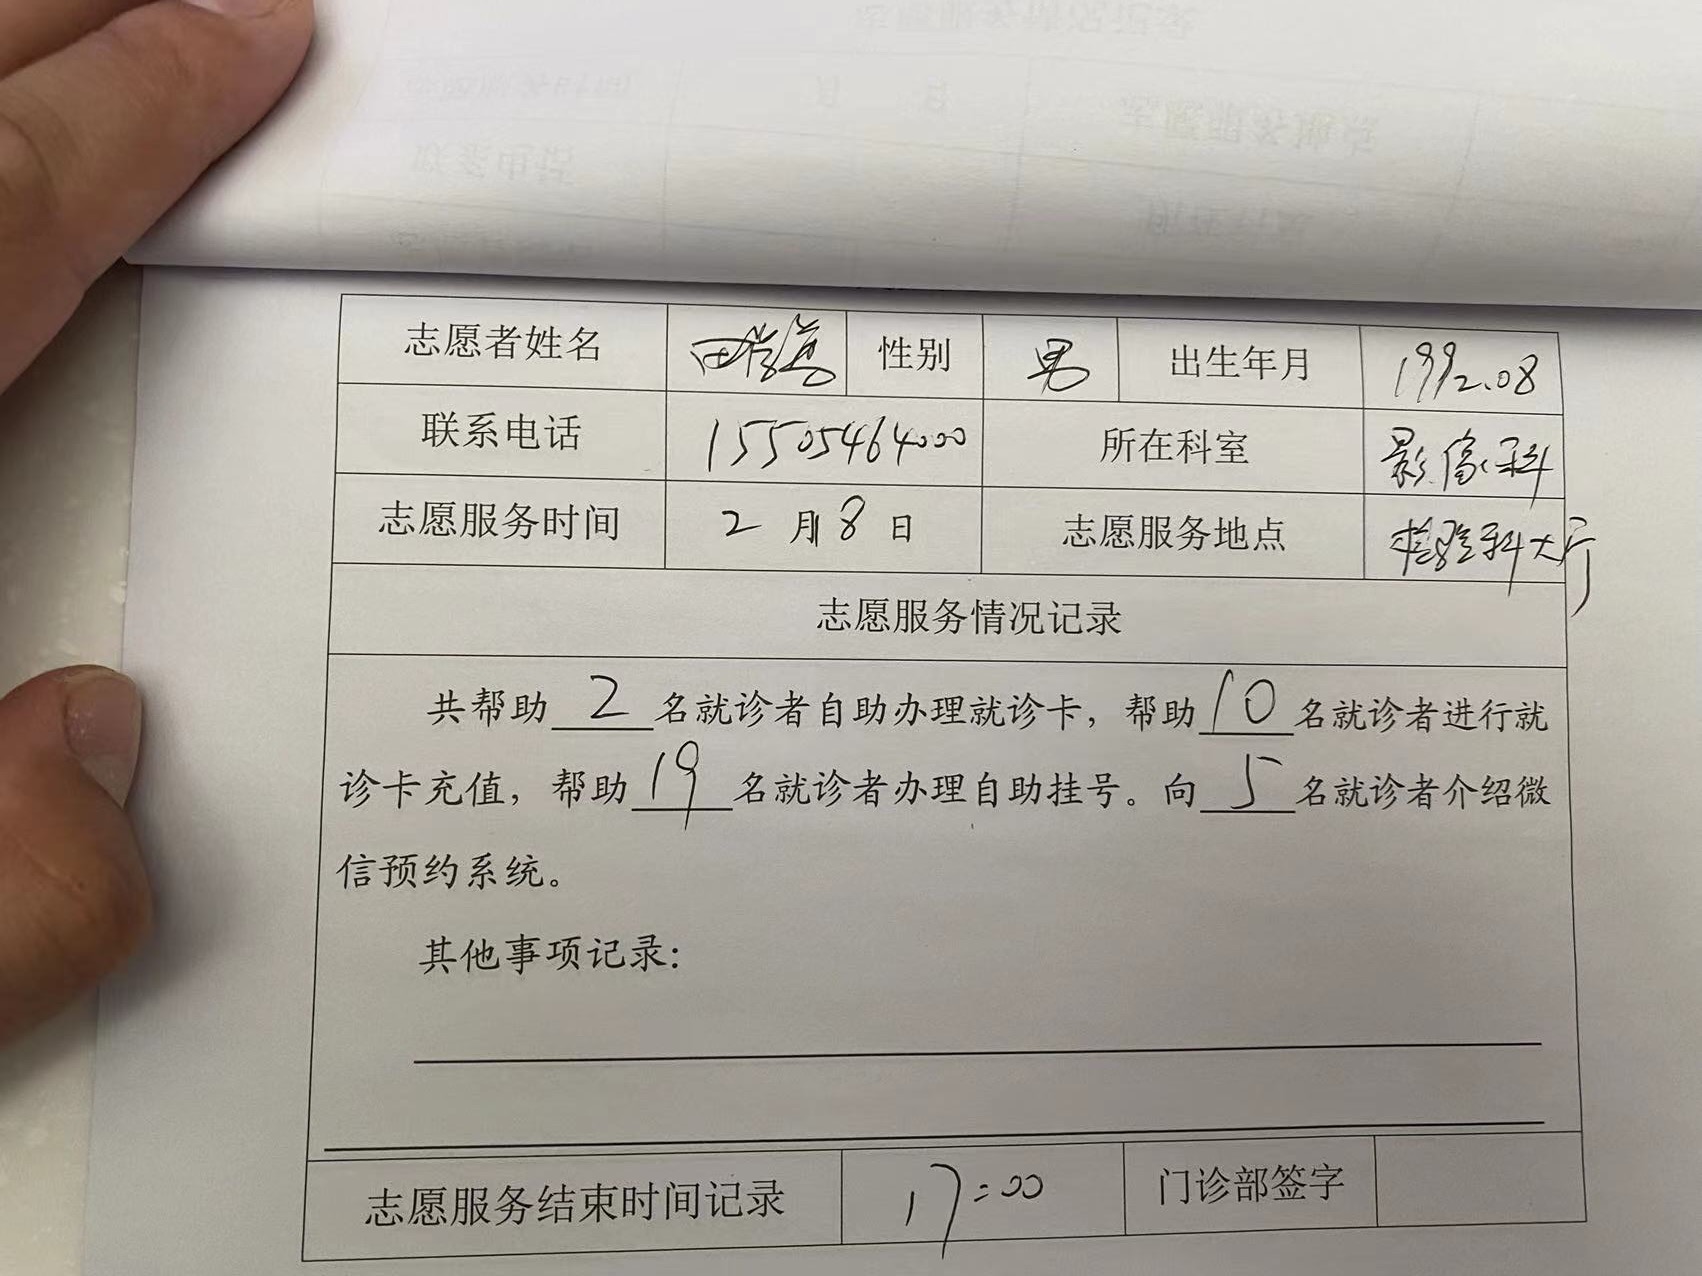 志愿者姓名 性别 男 出生年月 1992.08
联系电话 15505464000 所在科室 影像科
志愿服务时间 2月8日 志愿服务地点 检验科大厅
志愿服务情况记录
共帮助 2 名就诊者自助办理就诊卡，帮助 10 名就诊者进行就
诊卡充值，帮助 19 名就诊者办理自助挂号。向 5 名就诊者介绍微
信预约系统。
其他事项记录：
志愿服务结束时间记录 17:00 门诊部签字